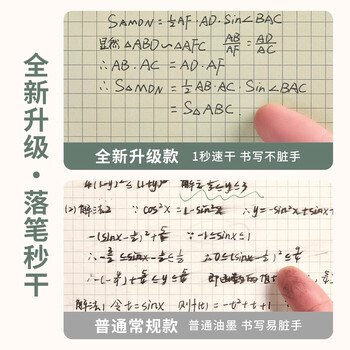 全新升级·落笔秒干
S△MDN = ½AF · AD · Sin∠BAC
显然 △ABD ∽ △AFC  AB/AF = AD/AC
∴ AB · AC = AD · AF
∴ S△MDN = ½ · AB · AC · Sin∠BAC
= S△ABC.
全新升级款 1秒速干 书写不脏手
(2)解法2 ∵ cos²x = 1 - sin²x ∴ y = -sin²x + sinx +
-(sinx - ½)² + 5/4 ∵ -1 ≤ sinx ≤ 1
解法1 令 t = sinx 则 f(t) = -t² + t + 1
普通常规款 普通油墨 书写易脏手